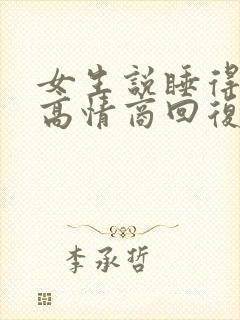 女生說睡得
高情商回復
李承哲